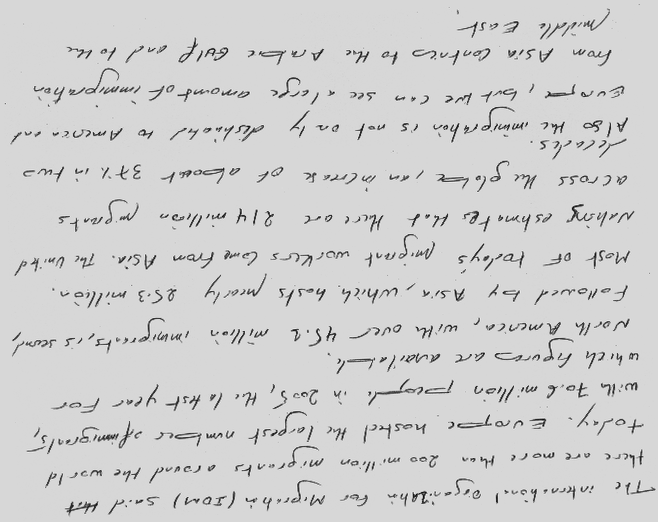 The international Organization for Migration (IOM) said that
there are more than 200 million migrants around the world
today. Europe hosted the largest number of immigrants,
with 70.6 million people in 2005, the latest year for
which figures are available.
North America, with over 45.1 million immigrants, is second,
Followed by Asia, which hosts nearly 25.3 million.
Most of today's migrant workers come from Asia. The United
Nations estmates that there are 214 million migrants
across the globe, an increase of about 37% in two
decades.
Also the immigration is not only destinated to America and
Europe, but we can see a large amount of immigration
from Asia Contries to the Arabic Gulf and to the
middle East.